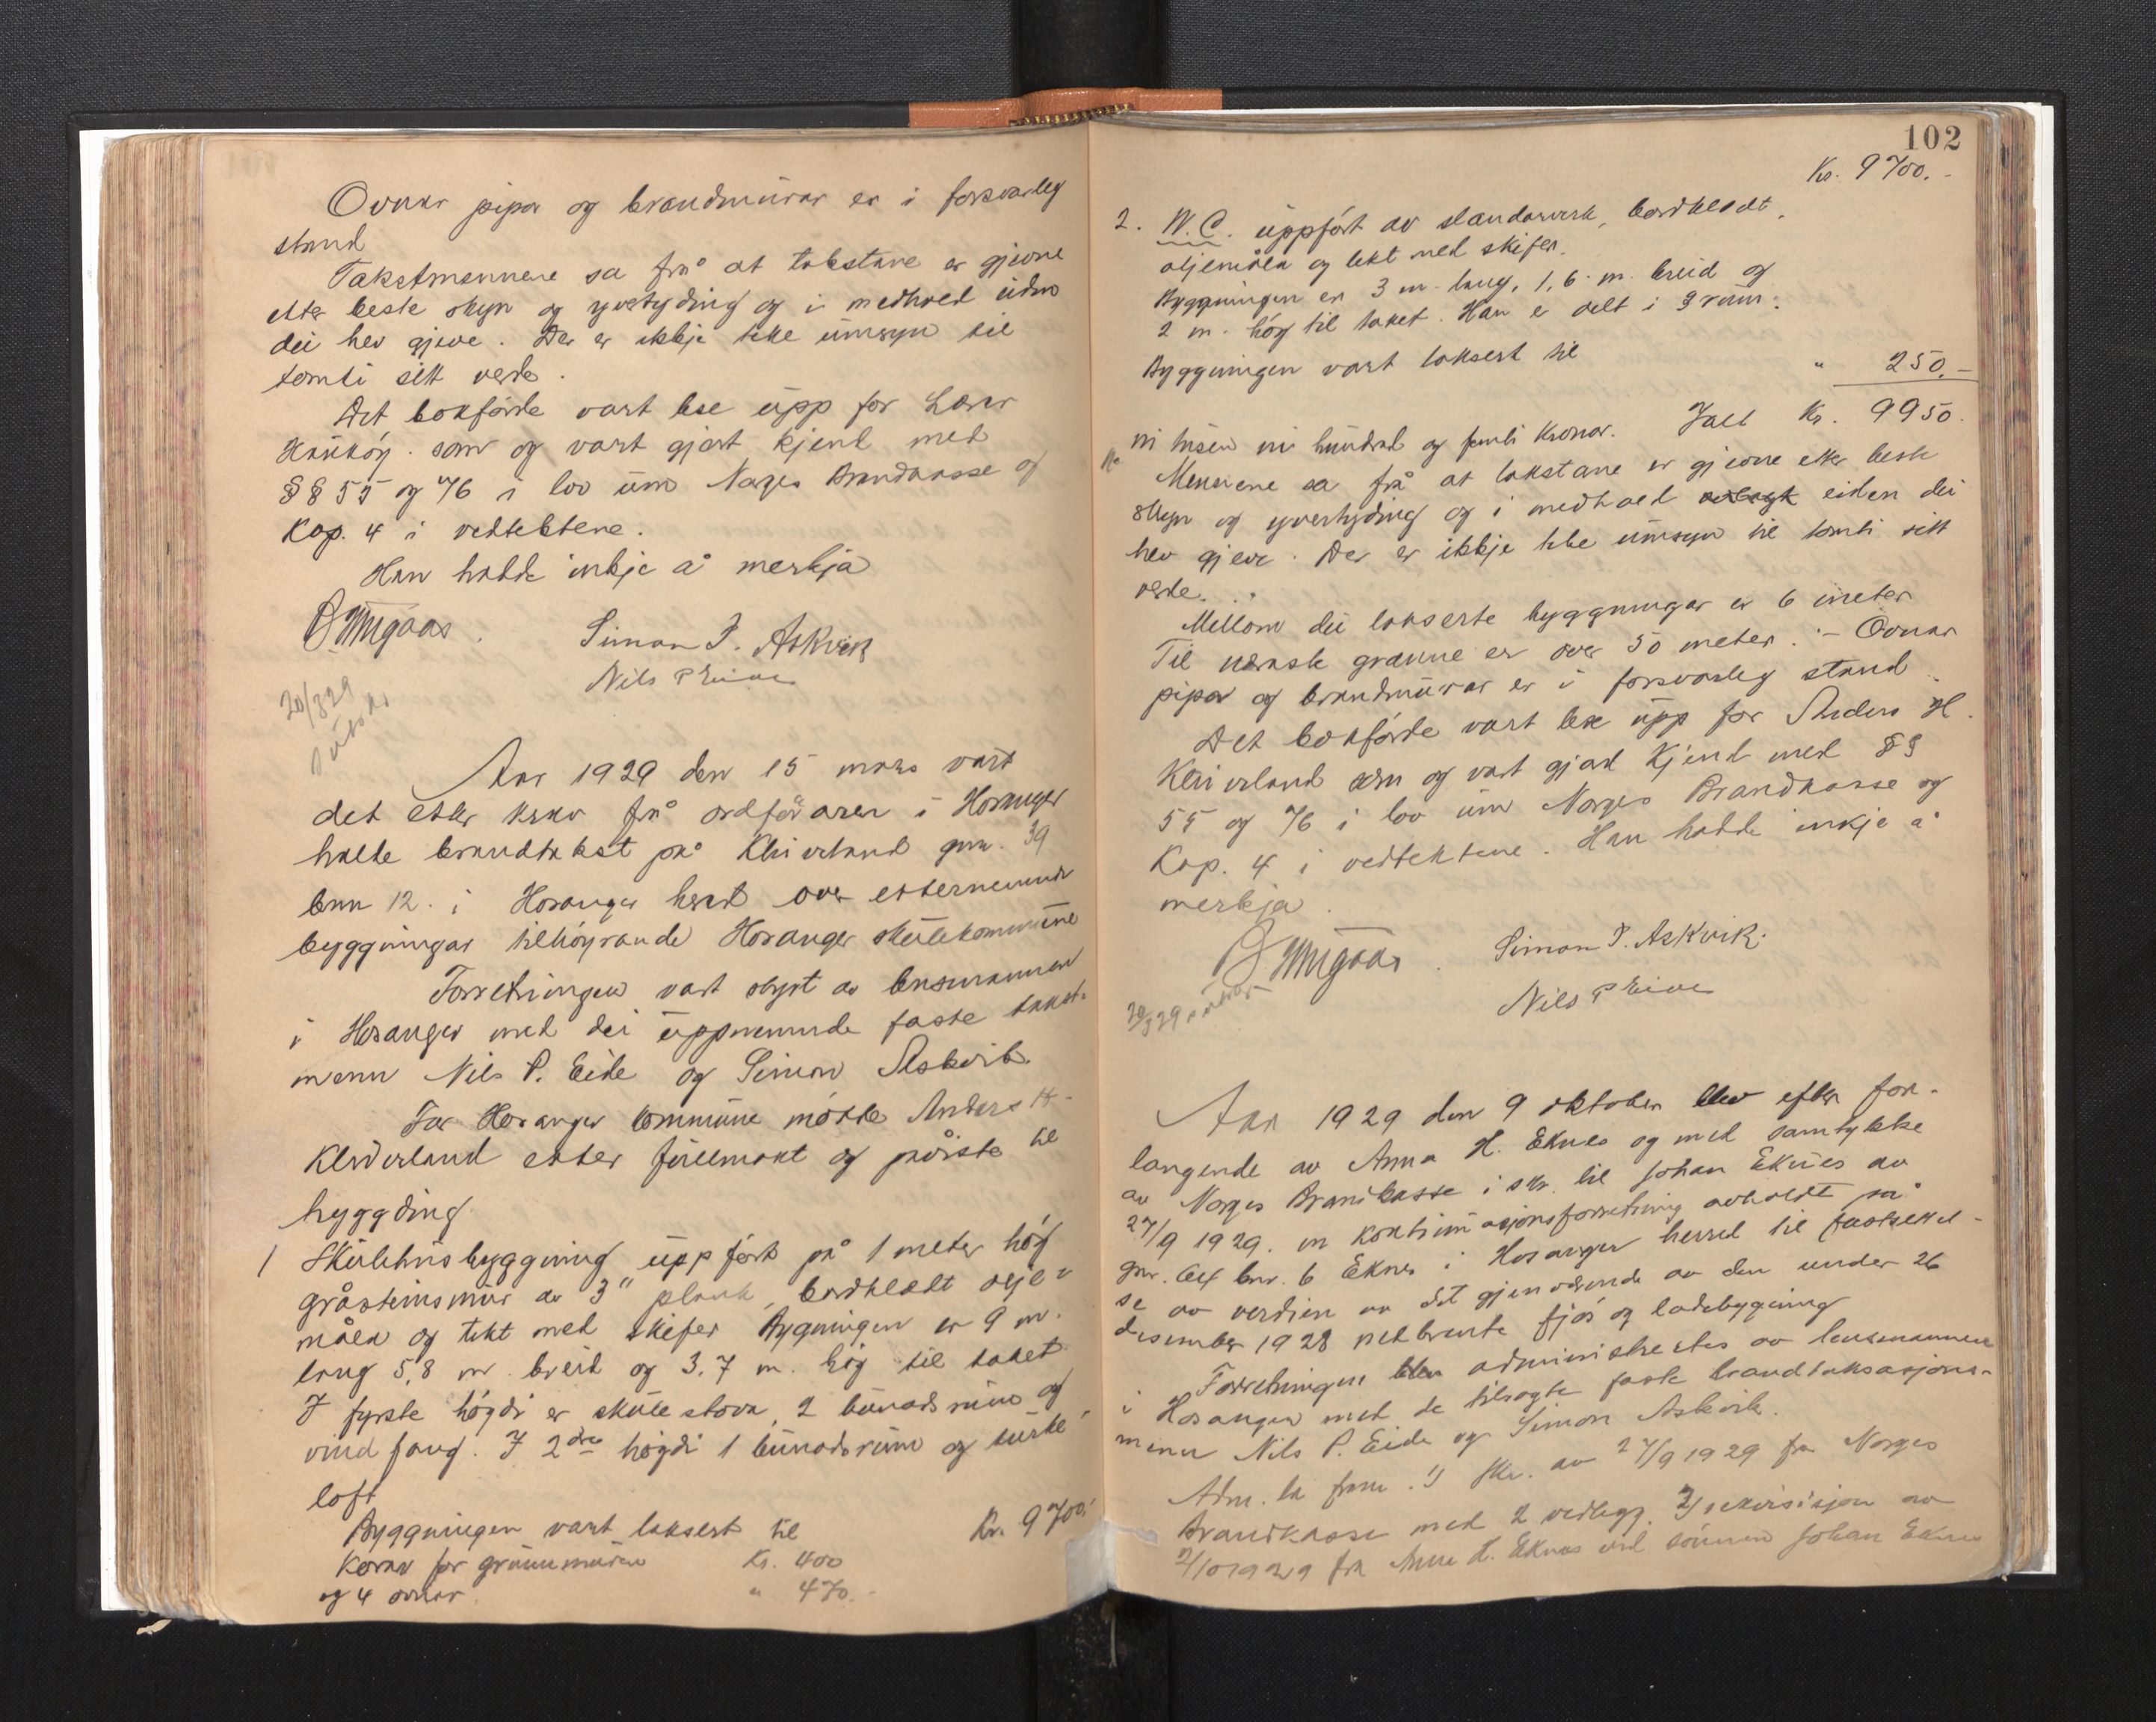 Ovnar pipa og brandmürar er i forsvarleg
stand
Takstmennene sa frå at takstane er gjevne
etter beste skyn og yvertyding og i medhald
dei hev gjeve. Der er ikkje teke ümsyn til
tomti sitt verde.
Det bokførde vart lese üpp for Lærar
som og vart gjort kjend med
§§ 55 og 76 i lov üm Norges Brandkasse og
Kap. 4 i vedtektene.
Han hadde inkje å merkja
Simon P. Askvik
Nils P Eide
20/3 29
Aar 1929 den 15 mars vart
det etter krav frå ordføraren i Hosanger
halde brandtakst på Kleiverland gnr. 39
bnr 12. i Hosanger herad over etternemnde
byggningar tilhøyrande Hosanger skülekommüne
Forretningen vart styrt av lensmannen
i Hosanger med dei üppnemnde faste takst-
menn Nils P. Eide og Simon Askvik
For Hosanger kommüne møtte Anders H.
Kleiverland etter füllmakt og påviste til
byggding
1 Skülehüsbyggning üppført på 1 meter høg
gråsteinsmür av 3" plank, bordkledt olje-
måla og tekt med skifer Bygningen er 9 m.
lang 5,8 m breid og 3,7 m. høg til taket
I fyrste høgdi er skülestova, 2 bünadsrüm og
vindfang. I 2dre høgdi 1 bünadsrüm og
loft
Byggningen vart taksert til Kr. 9700.-
Korav for grünnmüren Kr. 400
og 4 ovnar " 470.-
102
Kr. 9700.-
2. W.C. üppført av standarverk, bordkledt,
oljemåla og tekt med skifer.
Byggningen er 3 m. lang, 1,6 m. breid og
2 m. høg til taket. Han er delt i 3 rüm.
Byggningen vart taksert til " 250.-
Ialt Kr. 9950.
ni tüsen ni hündrad og femti Kronor.
Mennene sa frå at takstane er gjevne etter beste
skyn og yvertyding og i medhald eiden dei
hev gjeve. Der er ikkje teke ümsyn til tomti sitt
verde.
Millom dei takserte byggningar er 6 meter
Til næraste granne er over 50 meter. - Ovnar
pipa og brandmürar er i forsvarleg stand
Det bokførde vart lese üpp for Anders H.
Kleiverland som og vart gjort kjend med §§
55 og 76 i lov üm Norges Brandkasse og
Kap. 4 i vedtektene. Han hadde inkje å
merkja.
Simon P. Askvik.
Nils P Eide
20/3 29
Aar 1929 den 9 oktober blev efter for-
langende av Anna H. Eknes og med samtykke
av Norges Brankasse i skr. til Johan Eknes av
27/9 1929. en kontinuasjonsforretning avholdt på
gnr. 64 bnr. 6 Eknes i Hosanger herred til fastsettel-
se av verdien av det gjenværende av den under 26
desember 1928 nedbrente fjøs og ladebygning
Forretningen blev administrertes av lensmannen
i Hosanger med de tilsagte faste brandtaksasjons-
menn Nils P. Eide og Simon Askvik.
Adm. la frem. 1) skr. av 27/9 1929 fra Norges
Brandkasse med 2 vedlegg. 2) rekvisisjon av
2/10 1929 fra Anna H. Eknes ved sønnen Johan Eknes